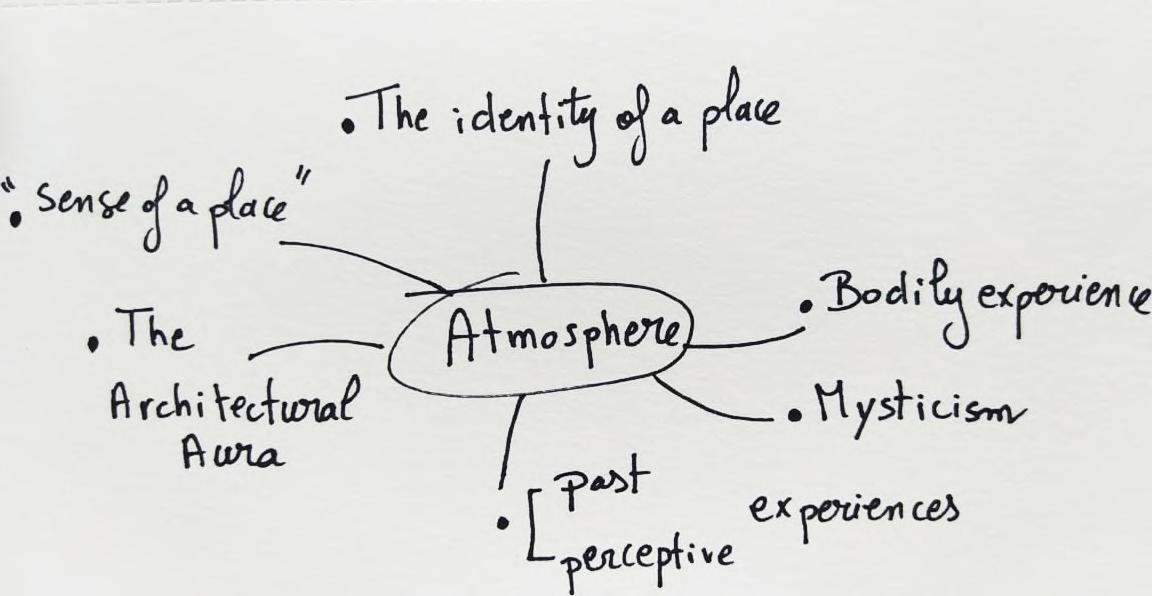 • The identity of a place
• "sense of a place"
Atmosphere
• Bodily experience
• The
Architectural
Aura
• Mysticism
• past
perceptive
experiences